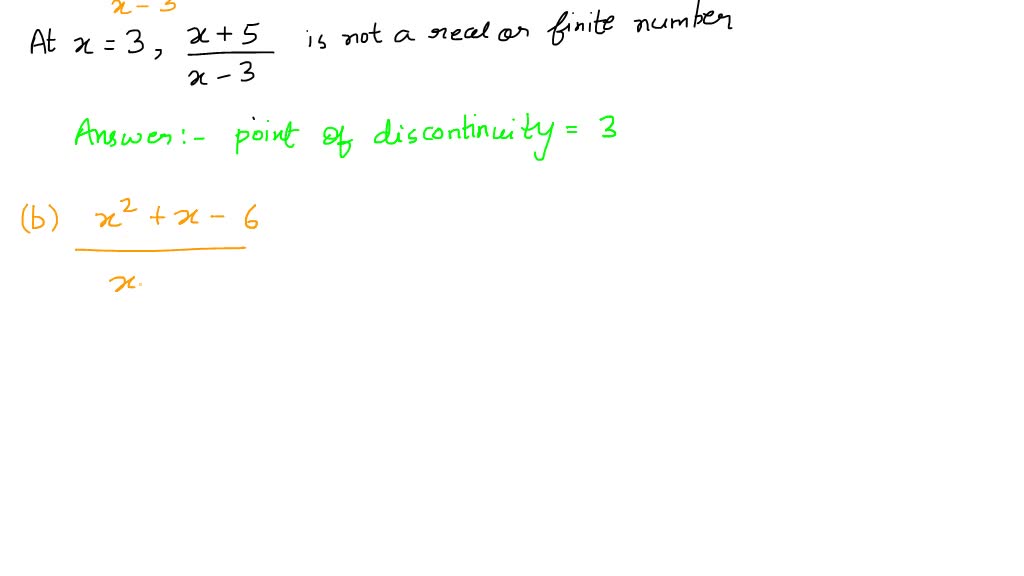 x - 3
At x = 3, x + 5 / x - 3 is not a real or finite number
Answer:- point of discontinuity = 3
(b) x² + x - 6
x